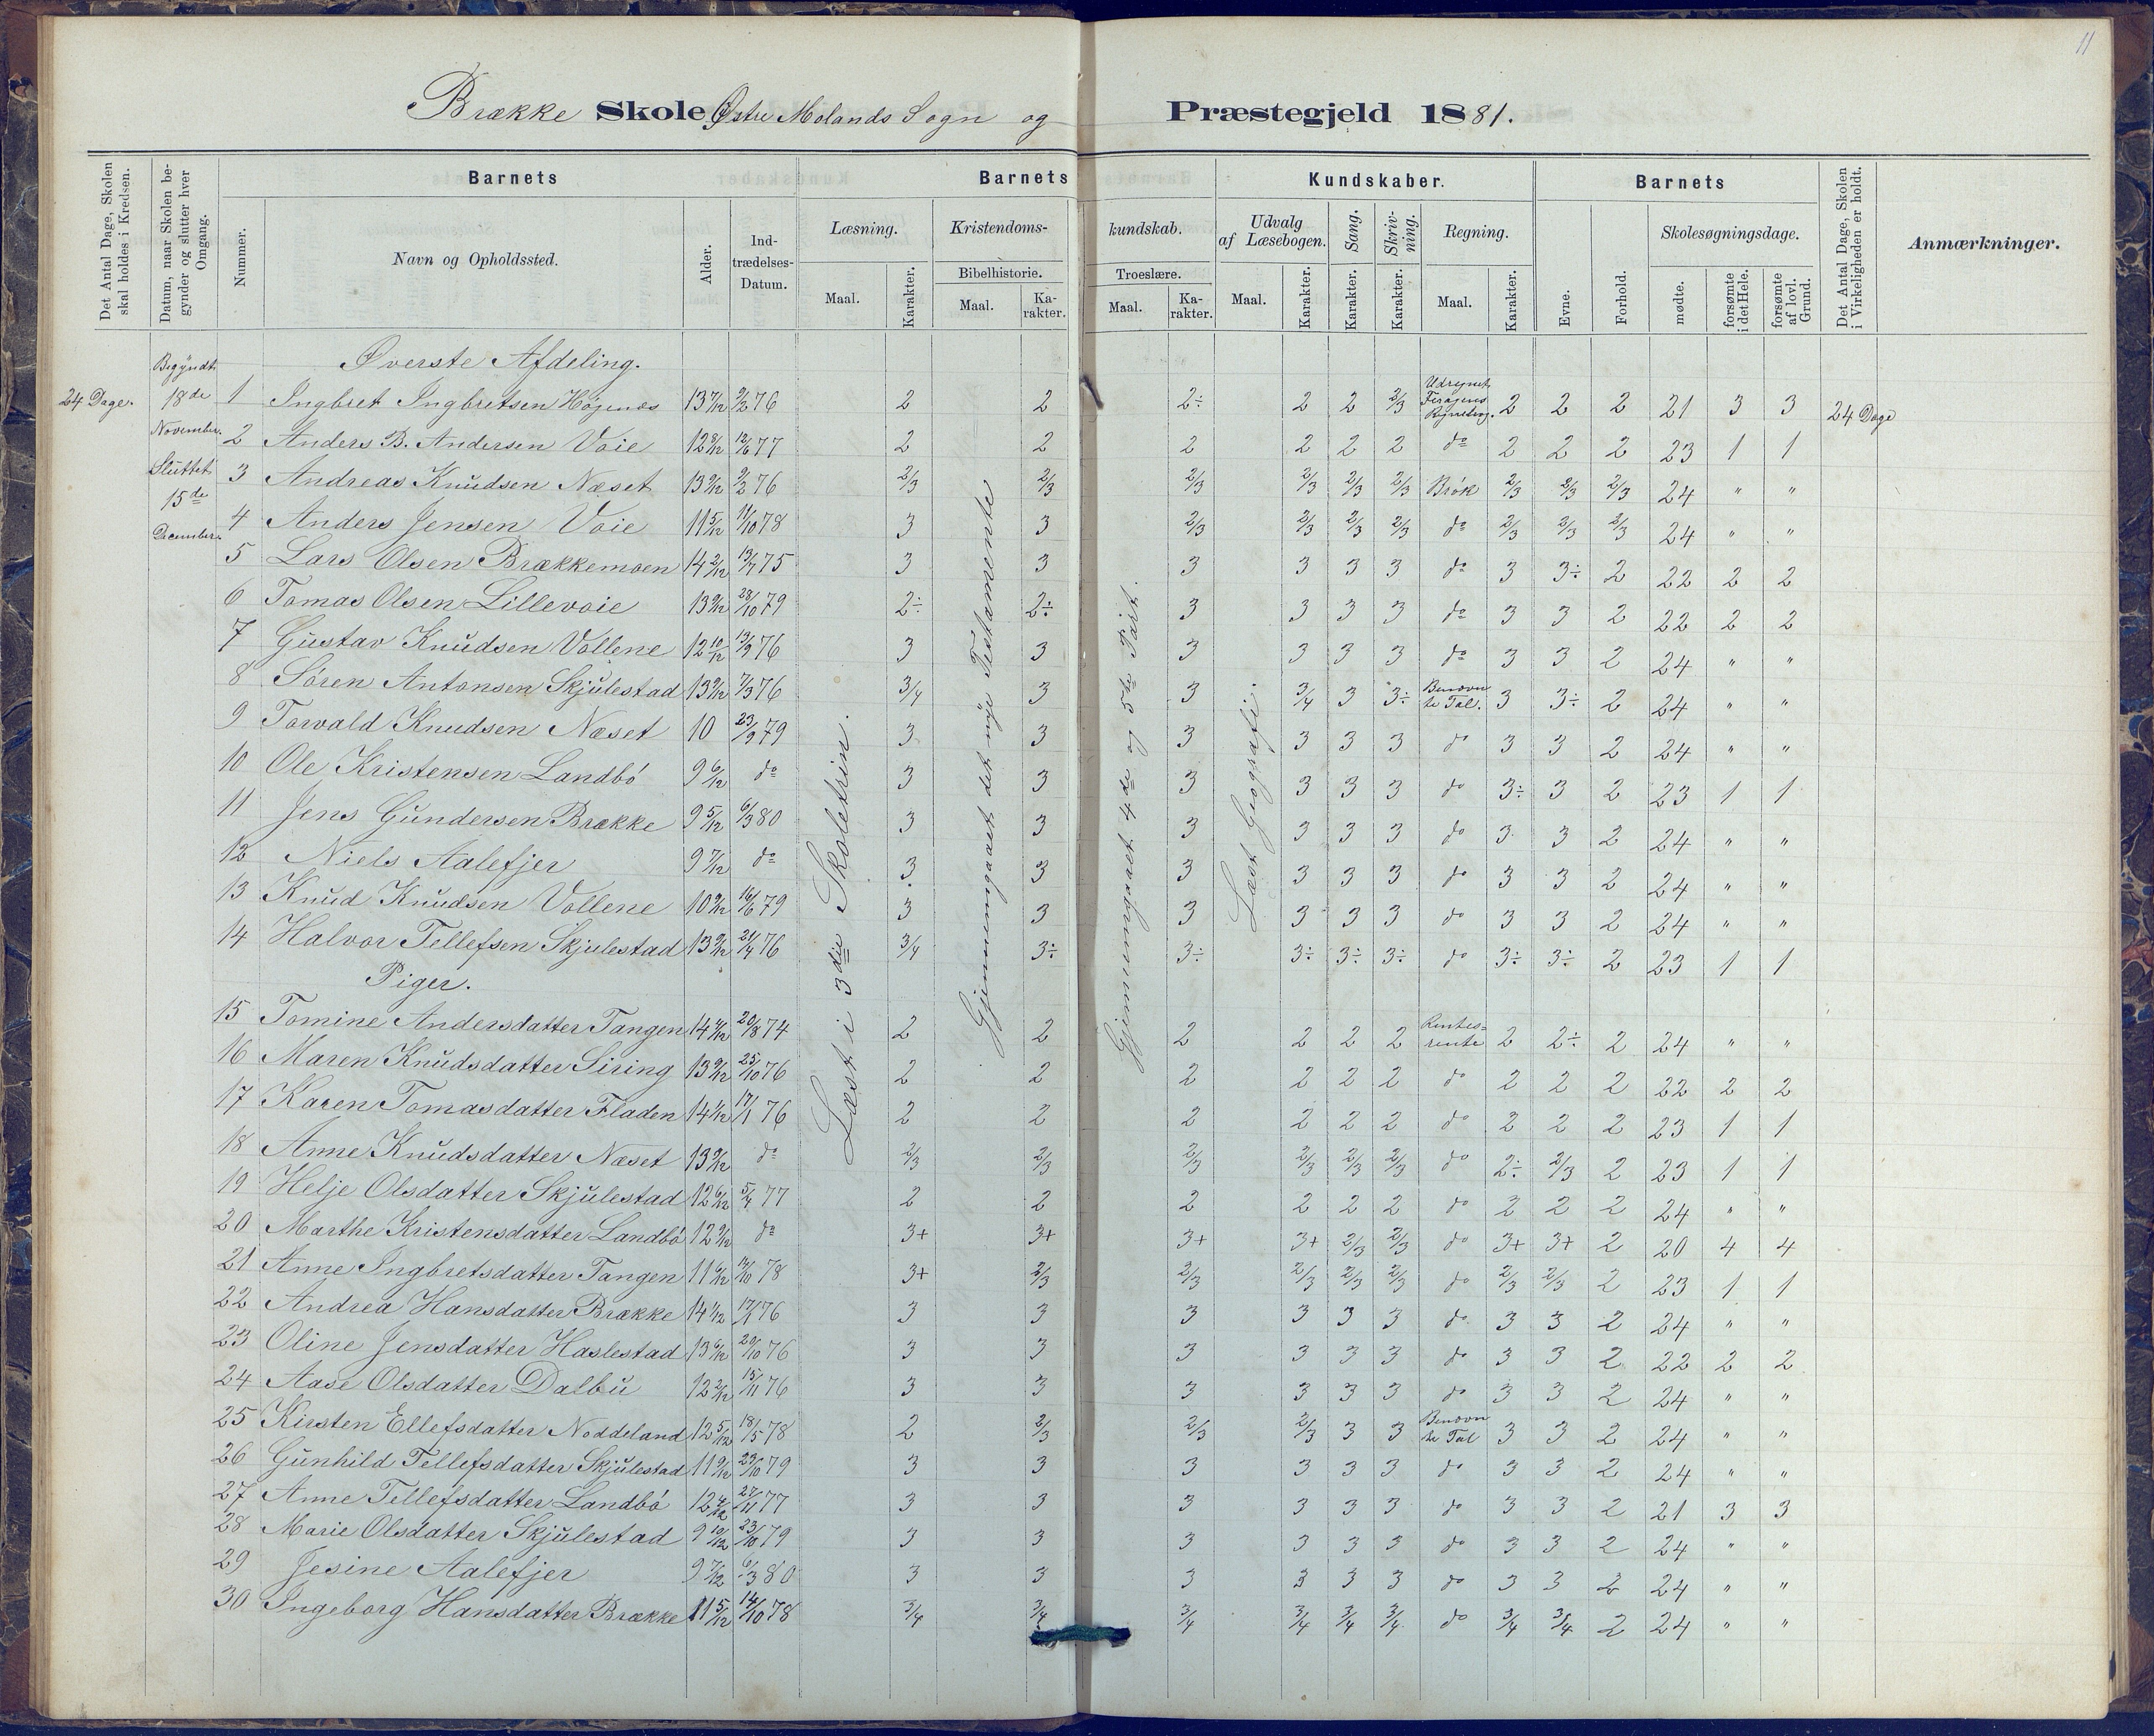 11
Brække Skole Østre Molands Sogn og Præstegjeld 1881.
Det Antal Dage, Skolen skal holdes i Kredsen.
Datum, naar Skolen begynder og slutter hver Omgang.
Barnets
Nummer.
Navn og Opholdssted.
Alder.
Indtrædelses-Datum.
Barnets Kundskaber.
Læsning.
Maal.
Karakter.
Kristendomskundskab.
Bibelhistorie.
Maal.
Karakter.
Troeslære.
Maal.
Karakter.
Udvalg af Læsebogen.
Maal.
Karakter.
Sang.
Karakter.
Skrivning.
Karakter.
Regning.
Maal.
Karakter.
Barnets
Evne.
Forhold.
Skolesøgningsdage.
mødte.
forsømte i det Hele.
forsømte af lovl. Grund.
Det Antal Dage, Skolen i Virkeligheden er holdt.
Anmærkninger.
24 Dage.
Begyndt 18de November.
Sluttet 15de December.
Læst i 3die Skoletrin.
Gjennemgaaet det nye Testamente
Gjennemgaaet 4de og 5te Part.
Læst Geografi.
24 Dage
Øverste Afdeling.
1 Ingbret Ingbretsen Højenæs 13 7/12 9/2 76 2 2 2÷ 2 2 2/3 Udregnet 2 2 2 21 3 3
2 Anders B. Andersen Voie 12 8/12 12/6 77 2 2 2 2 2 2 do 2 2 2 23 1 1
3 Andreas Knudsen Næset 13 9/12 9/2 76 2/3 2/3 2/3 2/3 2/3 2/3 Brøk 2/3 2/3 2/3 24 " "
4 Anders Jensen Voie 11 5/12 11/10 78 3 3 2/3 2/3 2/3 2/3 do 2/3 2/3 2/3 24 " "
5 Lars Olsen Brækkemoen 14 2/12 13/7 75 3 3 3 3 3 3 do 3 3÷ 2 22 2 2
6 Tomas Olsen Lillevoie 13 9/12 28/10 79 2÷ 2÷ 3 3 3 3 do 3 3 2 22 2 2
7 Gustav Knudsen Vollene 12 10/12 13/9 76 3 3 3 3 3 3 do 3 3 2 24 " "
8 Søren Antonsen Skjulestad 13 9/12 7/3 76 3/4 3 3 3/4 3 3÷ Benævnte Tal. 3 3÷ 2 24 " "
9 Torvald Knudsen Næset 10 23/9 79 3 3 3 3 3 3 do 3 3 2 24 " "
10 Ole Kristensen Landbö 9 6/12 do 3 3 3 3 3 3 do 3÷ 3 2 23 1 1
11 Jens Gundersen Brække 9 5/12 6/3 80 3 3 3 3 3 3 do 3 3 2 24 " "
12 Niels Aalefjer 9 7/12 do 3 3 3 3 3 3 do 3 3 2 24 " "
13 Knud Knudsen Vollene 10 9/12 16/6 79 3 3 3 3 3 3 do 3 3 2 24 " "
14 Halvor Tellefsen Skjulestad 13 9/12 24/4 76 3/4 3÷ 3÷ 3÷ 3÷ 3÷ do 3÷ 3÷ 2 23 1 1
Piger.
15 Tomine Andersdatter Tangen 14 4/12 20/8 74 2 2 2 2 2 2 Rentesrente 2 2÷ 2 24 " "
16 Maren Knudsdatter Siring 13 9/12 25/10 76 2 2 2 2 2 2 do 2 2 2 22 2 2
17 Karen Tomasdatter Fladen 14 1/12 17/1 76 2 2 2 2 2 2 do 2 2 2 23 1 1
18 Anne Knudsdatter Næset 13 9/12 do 2/3 2/3 2/3 2/3 2/3 2/3 do 2÷ 2/3 2 23 1 1
19 Helje Olsdatter Skjulestad 12 6/12 5/4 77 2 2 2 2 2 2 do 2 2 2 24 " "
20 Marthe Kristensdatter Landbö 12 9/12 do 3+ 3+ 3+ 3+ 2/3 2/3 do 3+ 3+ 2 20 4 4
21 Anne Ingbretsdatter Tangen 11 6/12 14/10 78 3+ 2/3 2/3 2/3 2/3 2/3 do 2/3 2/3 2 23 1 1
22 Andrea Hansdatter Brække 14 1/12 17/1 76 3 3 3 3 3 3 do 3 3 2 24 " "
23 Oline Jensdatter Haslestad 13 6/12 20/10 76 3 3 3 3 3 3 do 3 3 2 22 2 2
24 Aase Olsdatter Dalbu 12 2/12 15/11 76 3 3 3 3 3 3 do 3 3 2 24 " "
25 Kirsten Ellefsdatter Noddeland 12 5/12 18/5 78 2 2/3 2/3 2/3 3 3 Benævnte Tal 3 3 2 24 " "
26 Gunhild Tellefsdatter Skjulestad 11 9/12 23/10 79 3 3 3 3 3 3 do 3 3 2 24 " "
27 Anne Tellefsdatter Landbö 12 4/12 27/11 77 3 3 3 3 3 3 do 3 3 2 21 3 3
28 Marie Olsdatter Skjulestad 9 10/12 23/10 79 3 3 3 3 3 3 do 3 3 2 24 " "
29 Jesine Aalefjer 9 7/12 6/3 80 3 3 3 3 3 3 do 3 3 2 24 " "
30 Ingeborg Hansdatter Brække 11 5/12 14/10 78 3/4 3/4 3/4 3/4 3/4 3/4 do 3/4 3/4 2 24 " "